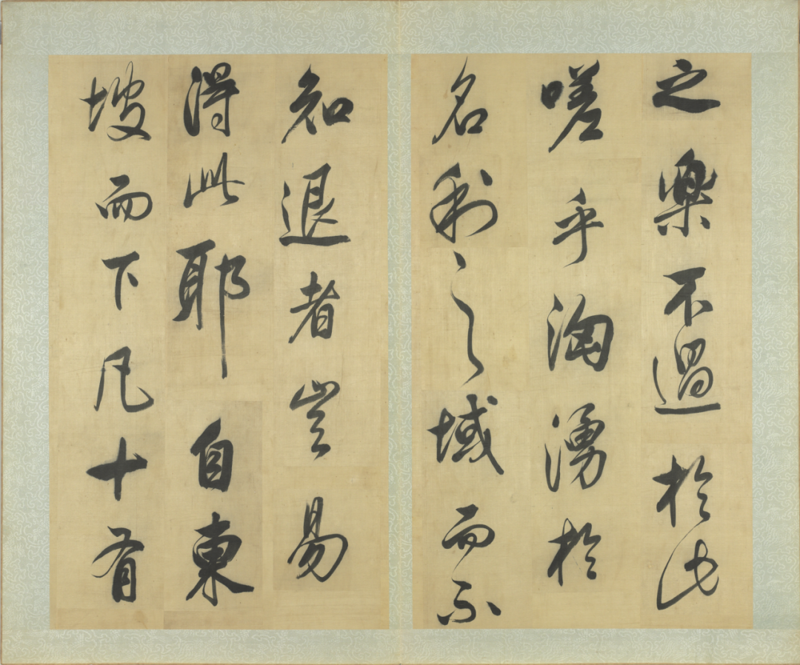 之樂不過於此
嗟乎洶湧於
名利之域而不
知退者豈易
得此耶自東
坡而下凡十有